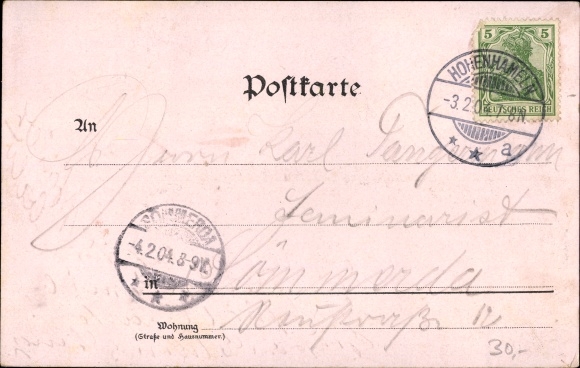 Postkarte
5 5
DEUTSCHES REICH
HOHENHAMELN
-3.2.0 7-8N.
* * a
An
Herrn Karl
Seminarist
SÖMMERDA
-4.2.04. 8-9V.
* * *
in Sömmerda
Wohnung
(Straße und Hausnummer)
30,-